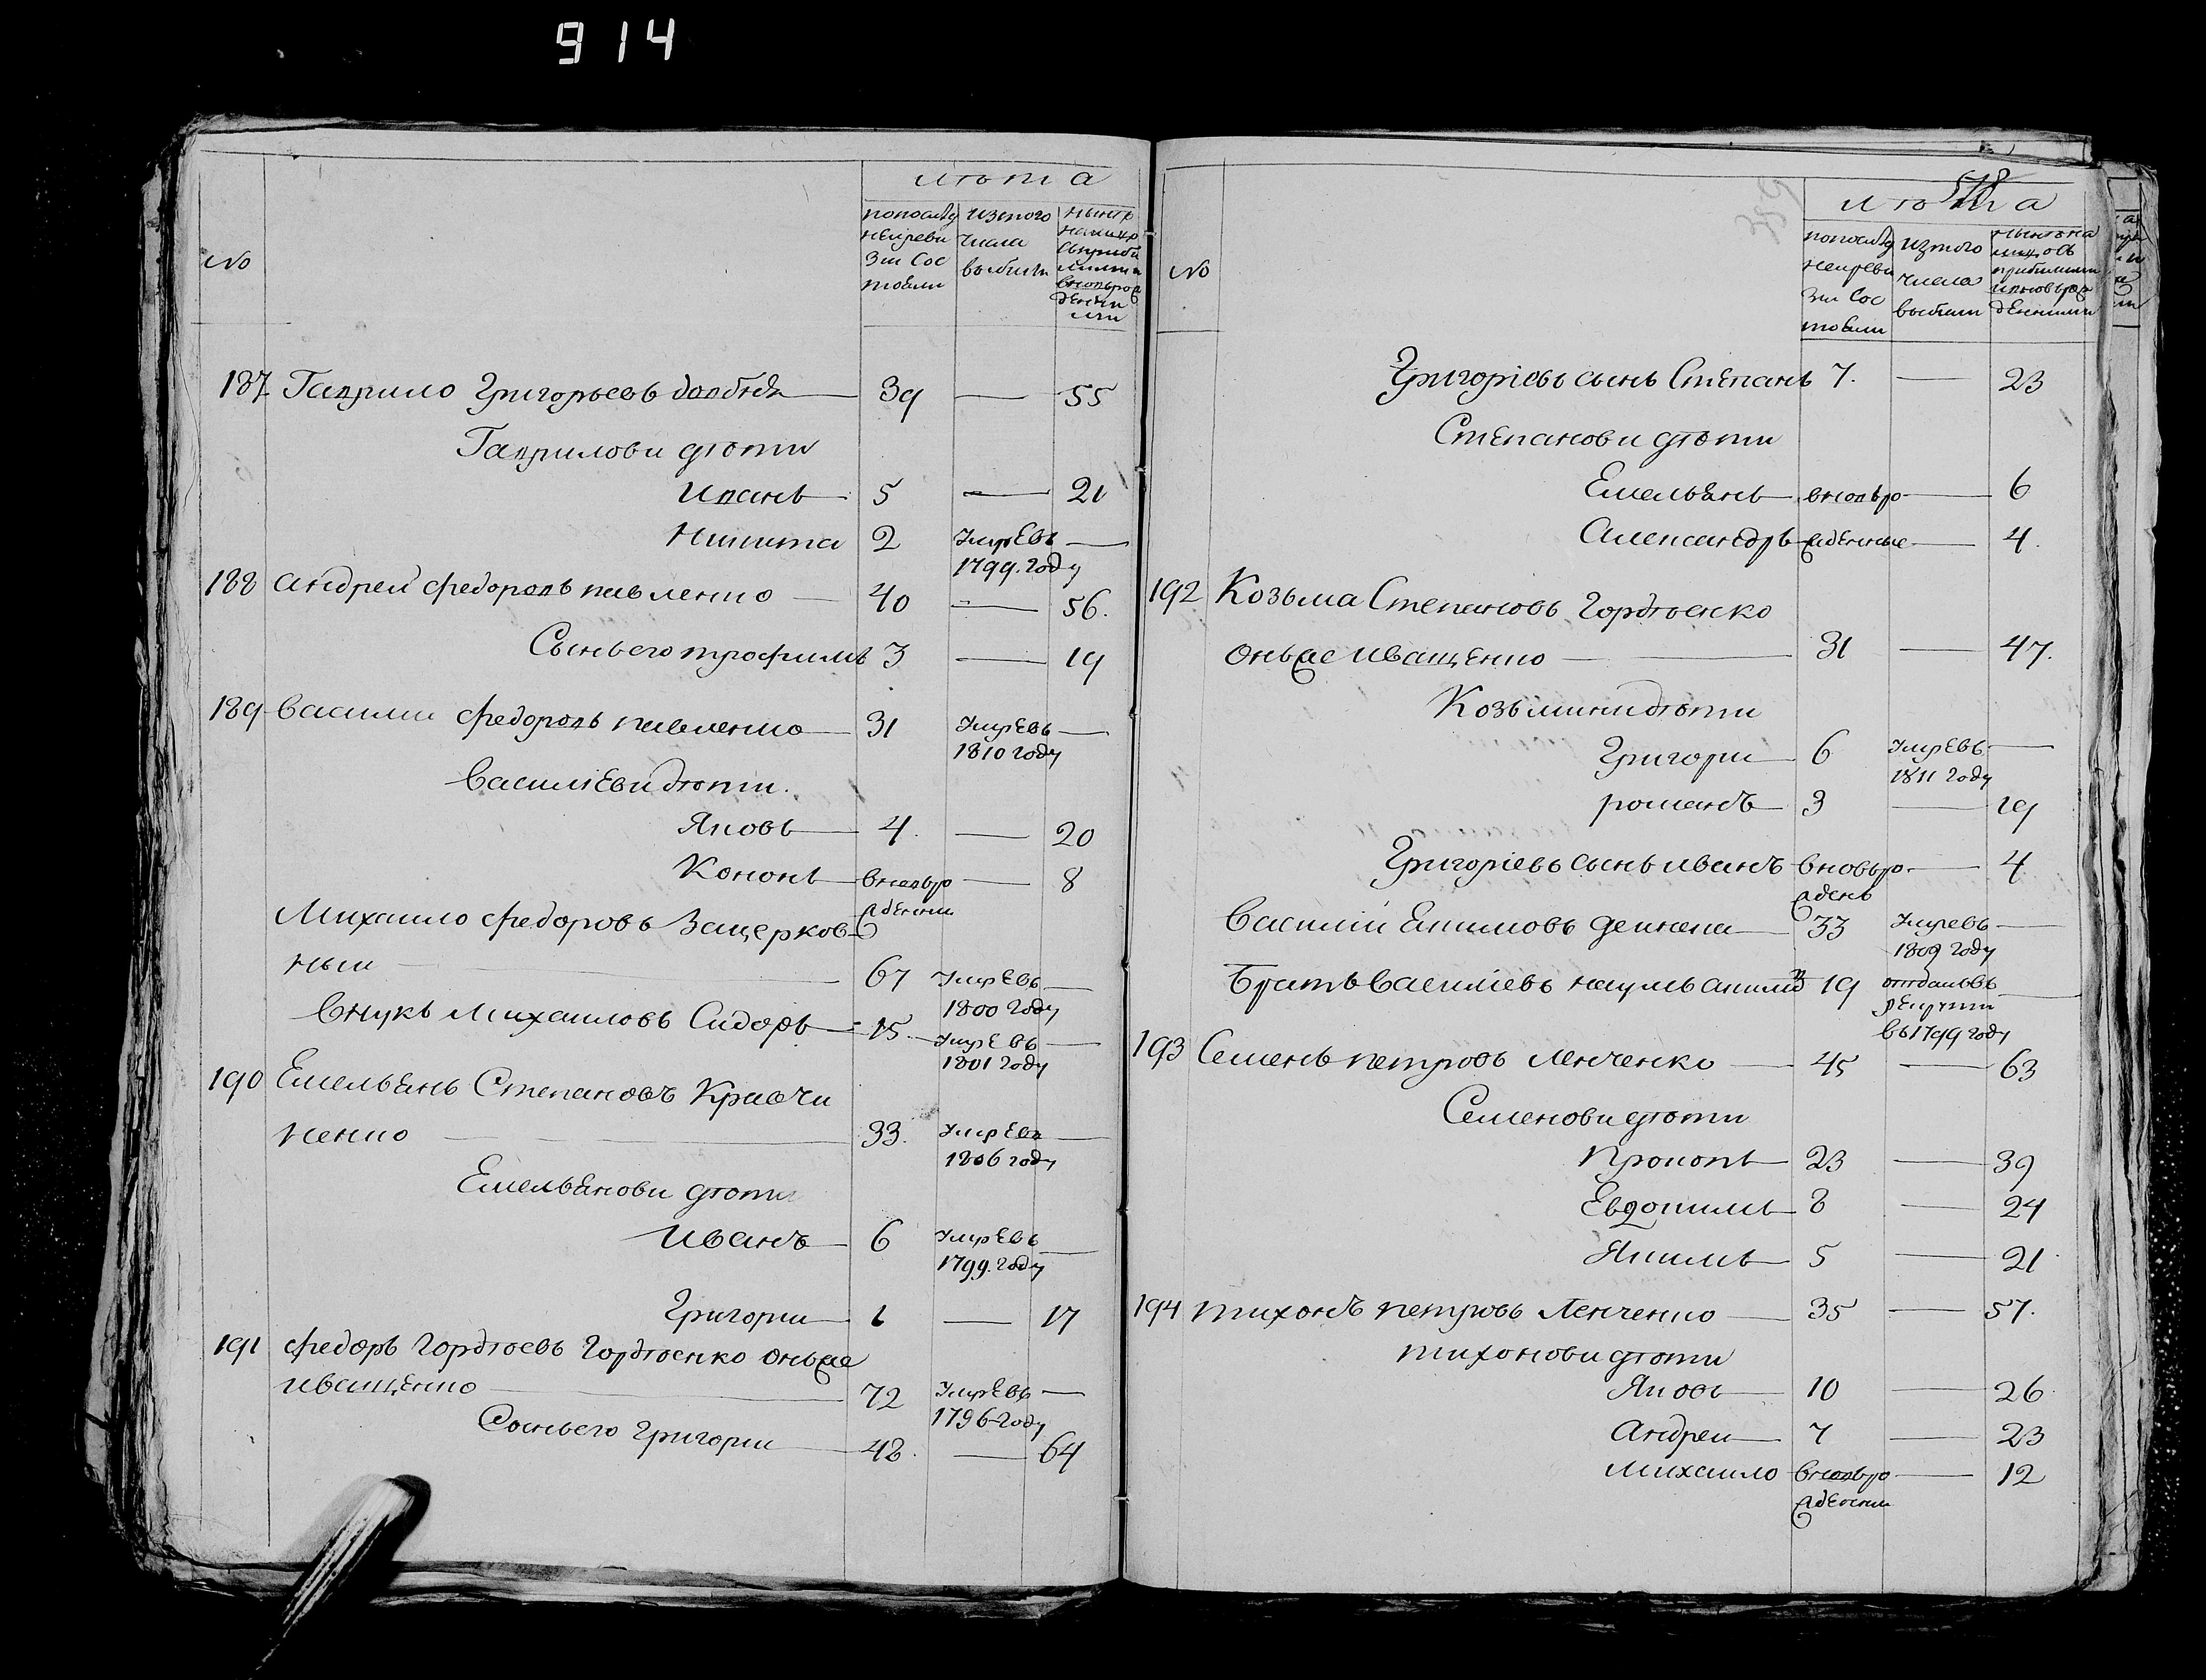 914
лѣта
No
попослѣд
ней реви
зии сос
тояли
изтого
числа
выбыли
187 Гаврило Григорьевъ Довбня 39 — 55
Гаврилови дѣти
Иванъ 5 — 21
Никита 2 Умревъ —
1799. году
188 Андрей Федоровъ Павленко — 40 — 56.
Сынъ его Трофимъ 3 — 19
189 Василии Федоровъ Павленко 31 Умревъ —
1810 году
Василіеви дѣти.
Яковъ 4. — 20
Кононъ вновьро — 8
жденни
Михаило Федоровъ Зацерков-
ныи 67 Умревъ —
1800 году
Внукъ Михаиловъ Сидоръ 15. Умревъ —
1801 году
190 Емельянъ Степановъ Кравчи
ненко 33. Умревъ —
1806 году
Емельянови дѣти
Иванъ 6 Умревъ —
1799. году
Григории 1 — 17
191 Федоръ Гордѣевъ Гордѣенко онъже
Иващенко 72 Умревъ —
1796 году
Сынъ его Григории 48. — 64
359
518
лѣта
No
попослѣд
ней реви
зии сос
тояли
изтого
числа
выбыли
ныне на
лицо съ
прибылими
и вновь рож
денними
Григоріевъ сынъ Степанъ 7. — 23
Степанови дѣти
Емельянъ вновьро — 6
Александръ жденные — 4.
192 Козьма Степановъ Гордѣенко
онъже Иващенко — 31 — 47.
Козьмини дѣти
Григори 6 Умревъ —
1811 году
Романъ 3 — 19
Григоріевъ сынъ Иванъ вновьро — 4
жденъ
Василий Екимовъ Дейнека 33 Умревъ —
1809 году
Братъ Василіевъ Наумъ 19 отданъ въ —
рекрути
въ 1799 году
193 Семенъ Петровъ Ленченко 45 — 63
Семенови дѣти
Прокопъ 23 — 39
Евдокимъ 8 — 24
Якимъ 5 — 21
194 Тихонъ Петровъ Ленченко 35 — 57.
Тихонови дѣти
Яковъ 10 — 26
Андреи 7 — 23
Михаило вновьро — 12
жденни